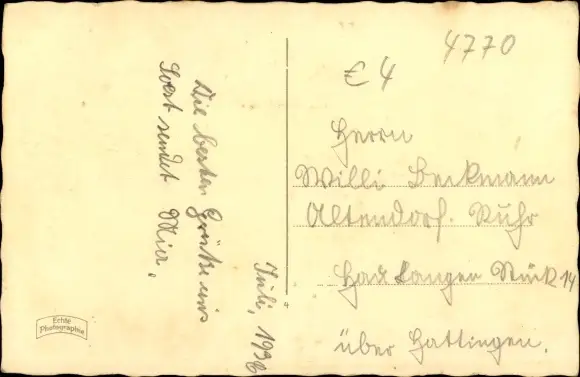 4770
€ 4
Die besten Grüße aus
Soest sendet Mia.
Juli, 1936
Herrn
Willi Beckmann
Altendorf. Ruhr
Langen Stück 14
über Hattingen.
Echte
Photographie